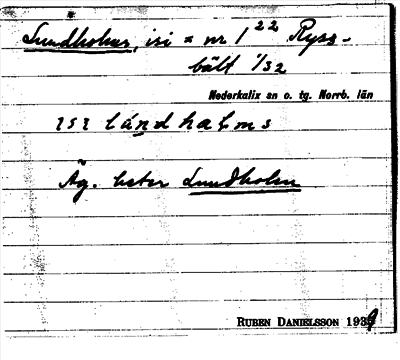 Lundholms, isi = nr 1²² Ryss-
bält 1/32
Nederkalix sn o. tg. Norrb. län
ɪsɪ lúndhaļms
Äg. heter Lundholm
RUBEN DANIELSSON 1939